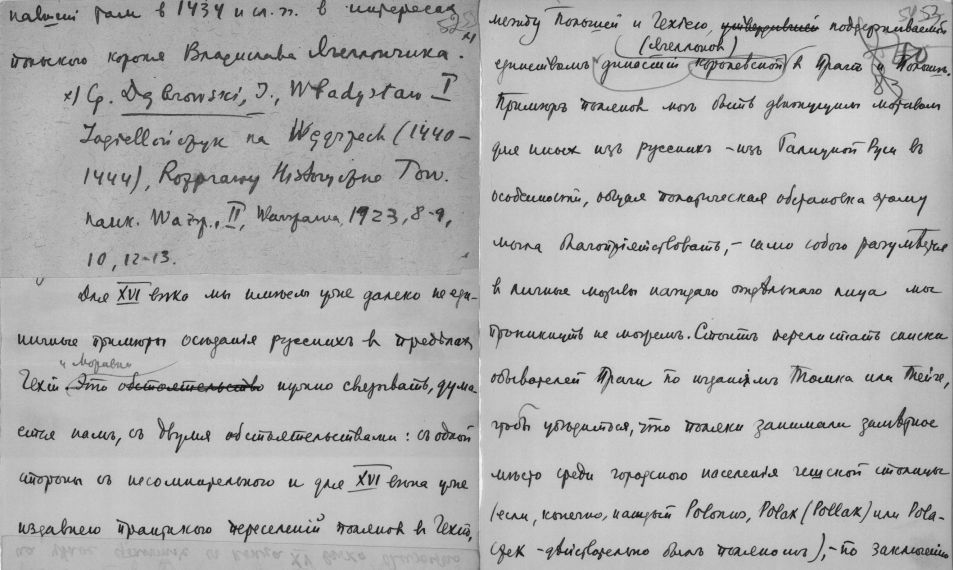 павшей роли в 1434 и сл. гг. в интересах
польского короля Владислава Ягеллончика.
х) Ср. Dąbrowski, J., Władysław I
Jagiellończyk na Węgrzech (1440–
1444), Rozprawy Historyczne Tow.
nauk. Warsz., II, Warszawa, 1923, 8-9,
10, 12-13.
Для XVI вѣка мы имѣемъ уже далеко не еди-
ничные примѣры осѣданія русскихъ в предѣлахъ
и Моравіи
Чехіи. Это обстоятельство нужно связывать, дума
ется намъ, съ двумя обстоятельствами: съ одной
стороны съ несомнительного и для XVI вѣка уже
издавнего практикого переселенiй поляковъ в Чехiю,
между Польшей и Чехiею, поддерживаемой
(Ягеллоновъ)
единствомъ династiи королевской в Прагѣ и Польшѣ.
Примѣръ поляковъ могъ быть движущимъ мотивомъ
для иныхъ изъ русскихъ – изъ Галицкой Руси въ
особенности, общая политическая обстановка этому
могла благопрiятствовать, – само собою разумѣется
в личные мотивы каждаго отдѣльнаго лица мы
проникнуть не можемъ. Стоитъ перелистать списки
обывателей Праги по изданiямъ Томка или Тейге,
чтобы убѣдиться, что поляки занимали замѣтное
мѣсто среди городского населенiя чешской столицы
(если, конечно, каждый Polonus, Polak (Pollak) или Pola-
czek – дѣйствительно былъ полякомъ), – по заключенiю